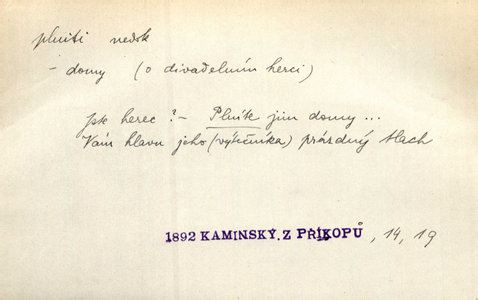 plniti nedok
– domy (o divadelním herci)
Jak herec? – Plník jim domy...
Vám hlavu jeho (výtečníka) prázdný tlach
1892 KAMINSKÝ, Z PŘÍKOPŮ, 14, 19